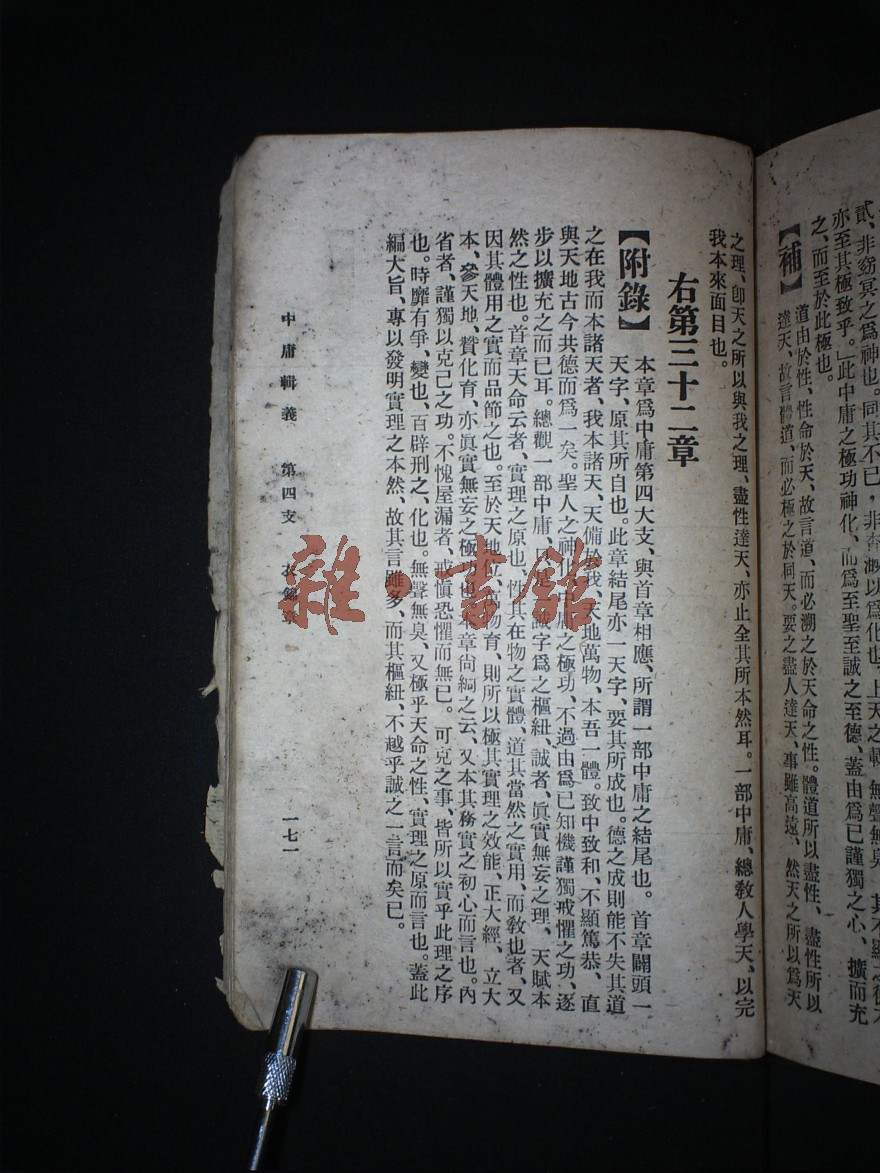 貳、非窈冥之爲神也。同其不已,非奔溉以爲化也。上天之載,無聲無臭
亦至其極致乎。」此中庸之極功神化、而爲至聖至誠之至德、蓋由爲己謹獨之心、擴而充
之、而至於此極也。
【補】
道由於性、性命於天、故言道、而必溯之於天命之性。體道所以盡性、盡性所以
達天、故言體道、而必極之於同天。要之盡人達天、事雖高遠、然天之所以爲天
之理、卽天之所以與我之理、盡性達天、亦止全其所本然耳。一部中庸、總敎人學天、以完
我本來面目也。
右第三十二章
【附錄】
本章爲中庸第四大支、與首章相應、所謂一部中庸之結尾也。首章闢頭一
天字、原其所自也。此章結尾亦一天字、要其所成也。德之成則能不失其道
之在我而本諸天者、我本諸天、天備於我、天地萬物、本吾一體。致中致和、不顯篤恭、直
與天地古今共德而爲一矣。聖人之神化中庸之極功、不過由爲已知機謹獨戒懼之功、逐
步以擴充之而已耳。總觀一部中庸、只是誠字爲之樞紐、誠者、眞實無妄之理、天賦本
然之性也。首章天命云者、實理之原也、性其在物之實體、道其當然之實用、而敎也者、又
因其體用之實而品節之也。至於天地位、萬物育、則所以極其實理之效能、正大經、立大
本、參天地、贊化育、亦眞實無妄之極功也。末章尙絅之云、又本其務實之初心而言也。內
省者、謹獨以克己之功。不愧屋漏者、戒愼恐懼而無已。可克之事、皆所以實乎此理之序
也。時靡有爭、變也、百辟刑之、化也。無聲無臭、又極乎天命之性、實理之原而言也。蓋此
編大旨、專以發明實理之本然、故其言雖多、而其樞紐、不越乎誠之一言而矣已。
中庸輯義 第四支 衣錦章 一七一
雜·書館